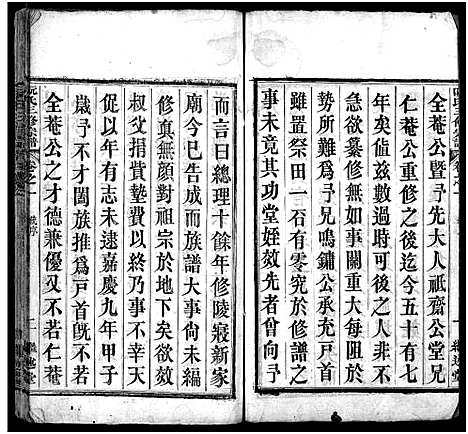 全菴公暨予先大人祇齋公堂兄
仁菴公重修之迄今五十有七
年矣值此代逺年湮之人若不
急欲纂修無如事關重大每阻於
勢所難爲予兄鳴鏞公承充戸首
雖置祭田一石零究於修譜
事未竟其功堂姪效先者曾向予
而言曰總理十餘年修陵寢新家
廟今已告成而族譜大事尚未編
修真無顔對祖宗於地下矣欲效
叔父捐貲贊成大事不幸天
促以年有志未遂嘉慶九年甲子
歳予不才闔族推爲戸首旣不若
全菴公之才德兼優又不若仁菴
阮氏三修宗譜
卷之一